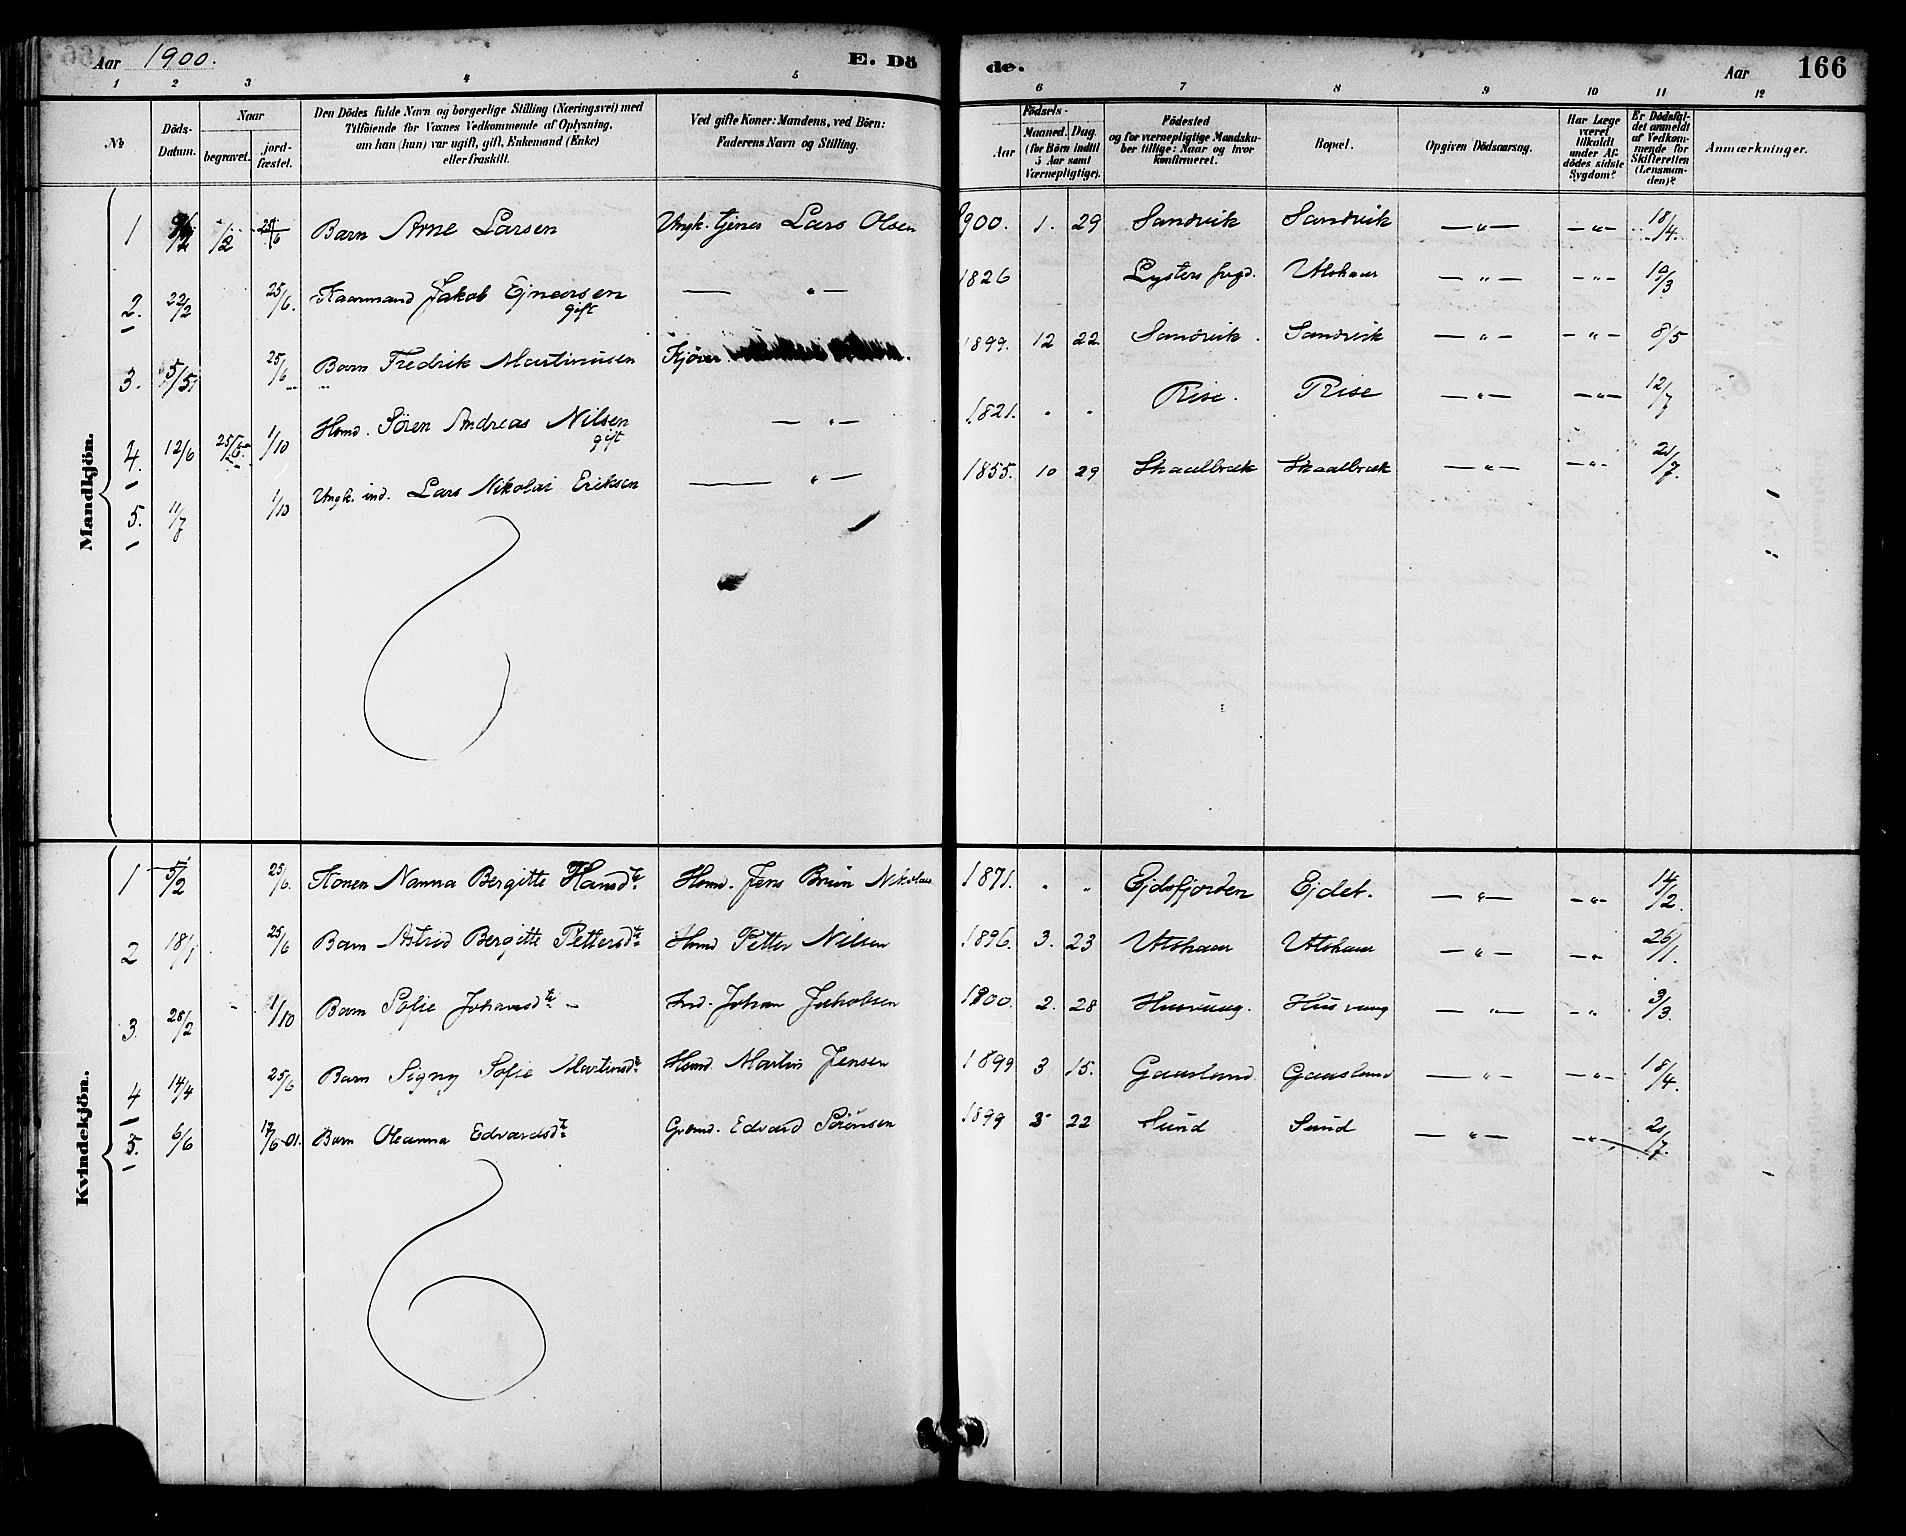 Aar 1900. E. Dö de. Aar 166
1 2 3 4 5 6 7 8 9 10 11 12
No Döds-Datum. Naar begravet. jord-fæstet. Den Dödes fulde Navn og borgerlige Stilling (Næringsvei) med Tilföiende for Voxnes Vedkommende af Oplysning, om han (hun) var ugift, gift, Enkemand (Enke) eller fraskilt. Ved gifte Koner: Mandens, ved Börn: Faderens Navn og Stilling. Födsels- Aar Maaned. Dag. (for Börn indtil 5 Aar samt Værnepligtige). Födested og for værnepligtige Mandskaber tillige: Naar og hvor konfirmeret. Bopæl. Opgiven Dödsaarsag. Har Læge været tilkaldt under Afdödes sidste Sygdom? Er Dödsfaldet anmeldt af Vedkommende for Skifteretten (Lensmanden)? Anmærkninger.
Mandkjön.
1 1/2 25/6 Barn Arne Larsen Ungk. tjener Lars Olsen 1900. 1. 29 Sandvik Sandvik — " — — " — 18/4.
2. 22/2 25/6. Kaarmand Jakob Ejnarsen gift — " — 1826 Lysters fogd. Utshaar — " — — " — 10/3
3. 5/5 25/6 Barn Fredrik Martinusen 1899. 12 22 Sandvik. Sandvik — " — — " — 8/5
4. 12/6 25/6 1/10 Hsmd. Sören Andreas Nilsen gift — " — 1821. " " Rise. Rise — " — — " — 12/7
5. 11/7 1/10 Ungk. ind. Lars Nikolai Eriksen — " — 1855. 10 29 Skaalbræk Skaalbræk — " — — " — 21/7.
Kvindekjön.
1 5/2 25/6. Konen Nanna Bergitte Hansdtr. Hsmd. Jens Brun Nikolais 1871. " " Ejdsfjorden Ejdet. — " — — " — 14/2.
2 18/1 25/6 Barn Astrid Bergitte Pettersdtr. Hsmd Petter Nilsen 1896. 3. 23 Utshaar Utshaar — " — — " — 26/1.
3 28/2 1/10 Barn Sofie Johansdtr. — Ind. Johan Jakobsen 1900. 2. 28 Husvaag. Husvaag — " — — " — 3/3.
4 14/4 25/6 Barn Signy Sofie Martinsdtr. Hsmd. Martin Jensen 1899 3 15. Gaasland Gaasland — " — — " — 18/4.
5. 6/6 17/6-01. Barn Oleanna Edvardsdtr. Grdmd. Edvard Sörensen 1899 3 22 Sund Sund — " — — " — 21/7.